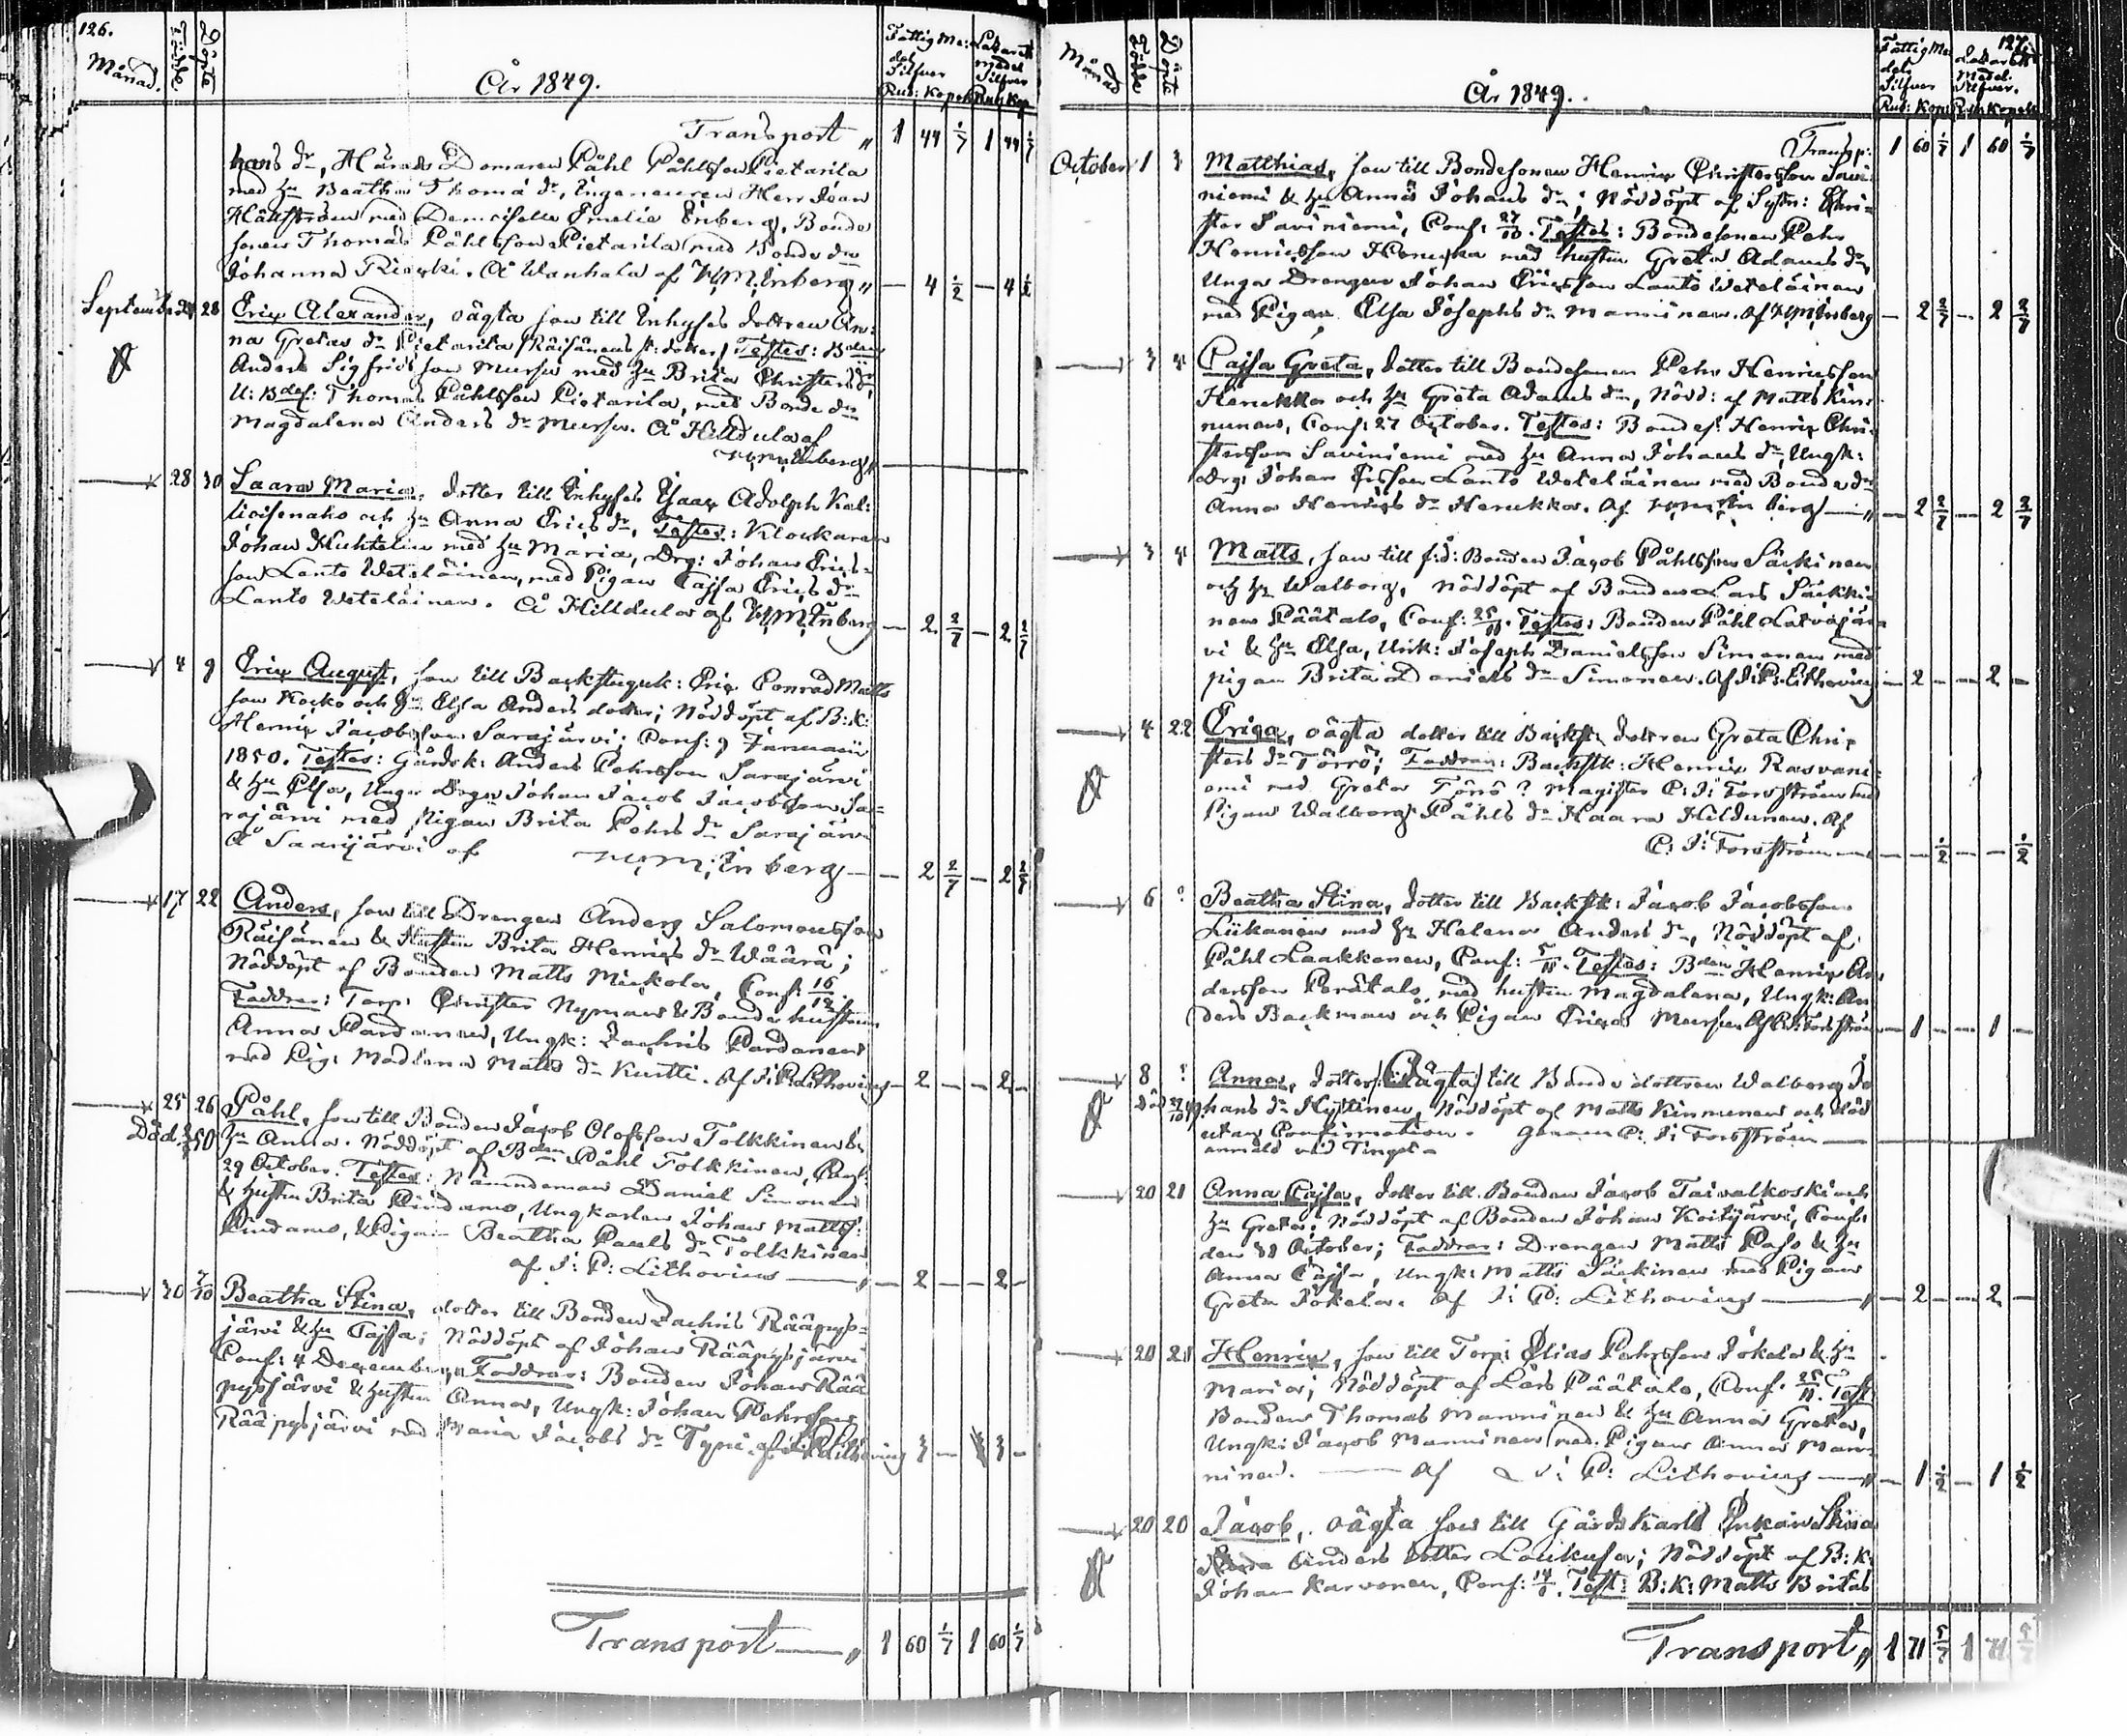 126.
Månad.
Födde
Döpte
År 1849.
Fattig Me:
del
Silfver
Rub: Kopek
Lazarett
medel
Silfver
Rub Kop
Transport „ 1 44 1/7 1 44 1/7
hans dr, Härads Domaren Påhl Påhlsson Pietarila
med hu Beatha Thomæ dr, Ingenieuren Herr Johan
Hällström med Demoiselle Emelie Enberg, Bonde
sonen Thomas Påhlsson Pietarila med Bonde dn
Johanna Rieski. Å Wanhala af H:M:Enberg „ — 4 1/2 — 4 1/2
September 28 Eric Alexander, oägta son till Inhyses dottren An-
na Gretas dr Pietarila /Räisänens st:dotter/ Testes: Bden
Anders Sigfrids son Mursu med hu Brita Christers dr,
U: Bdes: Thomas Påhlsson Pietarila, med Bonde dn
Magdalena Anders dr Mursu. Å Hilldula af
H:M:Enberg „ —
28 30 Saara Maria, dotter till Inhyses Isaac Adolph Kal-
lioisenaho och hu Anna Erics dr, Testes: Klockaren
Johan Huhtelin med hu Maria, Drg: Johan Erics-
son Lanto Weteläinen, med Pigan Cajsa Erics dr
Lanto Weteläinen. Å Hilldula af H:M:Enberg — 2 2/7 — 2 2/7
4 9 Eric August, son till Backstuguk: Eric Conrad Matts
son Kocko och hu Elsa Anders dotter; Nöddöpt af B:K:
Henric Jacobsson Sarajärvi; Conf: 9 Januarii
1850. Testes: Gårdsk: Anders Pehrsson Sarajärvi
& hu Elsa, Unga Drgn Johan Jacob Jacobsson Sa-
rajärvi med Pigan Brita Pehrs dr Sarajärvi
Å Saarijärvi af H:M:Enberg — 2 2/7 — 2 2/7
17 22 Anders, son till Drengen Anders Salomonsson
Räisänen & Hustrun Brita Henrics dr Wäärä;
Nöddöpt af Bonden Matts Mickola, Conf: 16/12.
Faddrar: Torp: Christer Nyman & Bonde hustrun
Anna Pardanen, Ungk: Zachris Pardanen
med Pig: Madlena Matts dr Kurtti. Af J:P:Lithovius — 2 — — 2 —
25 26 Påhl, son till Bonden Jacob Olofsson Tolkkinen &
hu Anna. Nöddöpt af Bden Påhl Tolkkinen, Conf:
29 October. Testes: Nämndeman Daniel Simonen
& hustru Brita Pindamo, Ungkarlen Johan Matts:
Pindamo, & Pigan Beatha Pauls dr Tolkkinen
af J: P: Lithovius — „ — 2 — — 2 —
30 7/10 Beatha Stina, dotter till Bonden Zachris Rääpys-
järvi & hu Cajsa; Nöddöpt af Johan Rääpysjärvi
Conf: 4 December, Faddrar: Bonden Johan Rää
pysjärvi & hustru Anna, Ungk: Johan Pehrsson
Rääpysjärvi med Maria Jacobs dr Typi. af J:P:Lithovius 3 — 3 —
Transport — „ 1 60 1/7 1 60 1/7
127.
Månad
Födde
Döpte
År 1849.
Fattig Me
dels
Silfver
Rub: Kop
Lazarett
Medel
Silfver.
Rub Kopek
Transp: 1 60 1/7 1 60 1/7
October 1 3 Matthias, son till Bondesonen Henric Christersson Savi-
niemi & hu Anna Johans dr; Nöddöpt af Sytn: Chri-
ster Saviniemi, Conf: 27/10. Testes: Bondesonen Pehr
Henricsson Henukka med hustru Greta Adams dr,
Unga Drengen Johan Ericsson Lanto Weteläinen
med Pigan Elsa Josephs dr Manninen. Af H:M:Enberg — 2 2/7 — 2 2/7
3 4 Cajsa Greta, dotter till Bondesonen Pehr Henricsson
Henukka och hu Greta Adams dr, Nödd: af Matts Kin-
nunen, Conf: 27 October. Testes: Bondes: Henric Chri-
stersson Saviniemi med hu Anna Johans dr, Ungk:
Drg: Johan Ersson Lanto Weteläinen med Bonde dn
Anna Henrics dr Henukka. Af H:M:Enberg — „ — 2 2/7 — 2 2/7
3 4 Matts, son till f:d: Bonden Jacob Påhlsson Säckinen
och hu Walborg, Nöddöpt af Bonden Lars Säckki-
nen Päätalo, Conf: 25/11. Testes: Bonden Påhl Latvajär-
vi & hu Elsa, Unk: Joseph Danielsson Simonen med
pigan Brita Daniels dr Simonen. Af J:P:Lithovius — 2 — — 2 —
4 22 Erica, oägta dotter till Backst: dottren Greta Chri-
sters dr Törrö; Faddrar: Backstk: Henric Rasvani-
emi med Greta Törrö? Magister C: J: Forsström med
Pigan Walborg Påhls dr Haara Hildunen. Af
C: J: Forsström — — 1/2 — — 1/2
6 ? Beatha Stina, dotter till Backstk: Jacob Jacobsson
Liikanen med hu Helena Anders dr, Nöddöpt af
Påhl Laakkonen, Conf: 5/11. Testes: Bden Henric An-
dersson Perätalo med hustrun Magdalena, Ungk: An-
ders Backman och Pigan Erica Mursu. Af C:J:Forsström — 1 — — 1 —
8 ? Anna, dotter /:Oägta:/ till Bonde dottren Walborg Jo
hans dr Hyttinen, Nöddöpt af Matts Kinnunen och död
utan Confirmation. Genom C: J: Forsström —
anmäld vid Tinget —
20 21 Anna Cajsa, dotter till Bonden Jacob Taivalkoski och
hu Greta; Nöddöpt af Bonden Johan Koitijärvi, Conf:
den 28 October; Faddrar: Drengen Matts Paso & hu
Anna Cajsa, Ungk: Matts Säckinen med Pigan
Greta Jokela. Af J: P: Lithovius — „ — 2 — — 2 —
20 21 Henric, son till Torp: Elias Pehrsson Jokela & hu
Maria; Nöddöpt af Lars Päätalo, Conf: 25/11. Test:
Bonden Thomas Manninen & hu Anna Greta,
Ungk: Jacob Manninen med Pigan Anna Man-
ninen. — Af J: P: Lithovius — „ — 1 1/2 — 1 1/2
20 20 Jacob, oägta son till Gårdskarls Enkan Stina
Anders dotter Loukusa; Nöddöpt af B:K:
Johan Karvonen, Conf: Test: B:K: Matts Britas
Transport „ 1 71 5/7 1 71 5/7